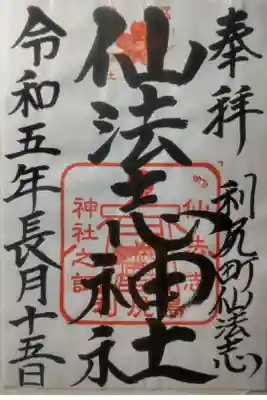 奉拝
利尻町仙法志
仙法志神社
令和五年長月十五日
神社之印